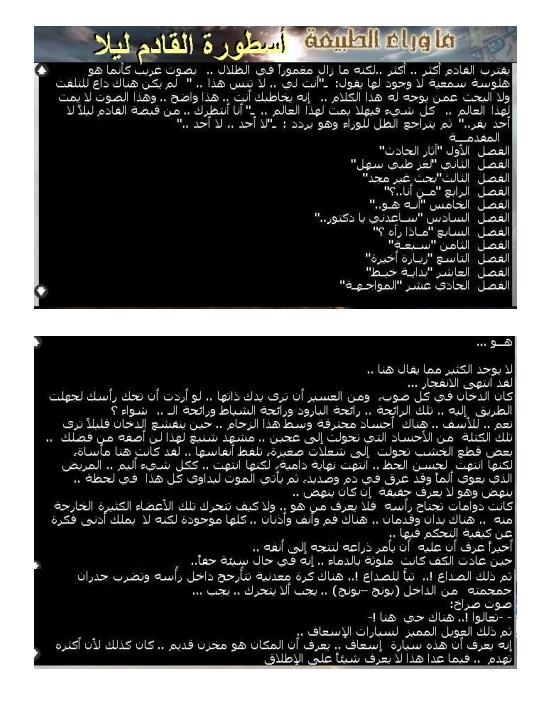 ما وراء الطبيعة
أسطورة القادم ليلا
يقترب القادم أكثر .. أكثر ..لكنه ما زال مغموراً في الظلال .. بصوت غريب كأنما هو
هلوسة سمعية لا وجود لها يقول: _"أنت لي .. لا تنس هذا .. " لم يكن هناك داع للتلفت
ولا البحث عمن يوجه له هذا الكلام .. إنه يخاطبك أنت .. هذا واضح .. وهذا الصوت لا يمت
لهذا العالم .. كل شيء فيهلا يمت لهذا العالم .. _" أنا أنتظرك .. من قبضة القادم ليلاً لا
أحد يفر.." ثم يتراجع الظل للوراء وهو يردد : _"لا أحد .. لا أحد .."
المقدمـــة
الفصل الأول "آثار الحادث"
الفصل الثاني "لغز طبي سهل"
الفصل الثالث"بحث غير مجد"
الفصل الرابع "مـن أنا..؟"
الفصل الخامس "إنـه هـو.."
الفصل السادس "سـاعدني يا دكتور.."
الفصل السابع "مـاذا رآه ؟"
الفصل الثامن "سـبعـة"
الفصل التاسع "زيـارة أخيرة"
الفصل العاشر "بدايـة خيـط"
الفصل الحادي عشر "المواجـهـة"
هــو ...
لا يوجد الكثير مما يقال هنا ..
لقد انتهى الانفجار ...
كان الدخان في كل صوب، ومن العسير أن ترى يدك ذاتها .. لو أردت أن تحك رأسك لجهلت
الطريق إليه .. تلك الرائحة .. رائحة البارود ورائحة الشياط ورائحة الـ .. شواء ؟
نعم .. للأسف .. هناك أجساد محترقة وسط هذا الزحام .. حين ينقشع الدخان قليلاً ترى
تلك الكتلة من الأجساد التي تحولت إلى عجين .. مشهد شنيع لهذا لن أصفه من فضلك ..
بعض قطع الخشب تحولت إلى شعلات صغيرة، تلفظ أنفاسها .. لقد كانت هنا مأساة،
لكنها انتهت لحسن الحظ .. انتهت نهاية دامية، لكنها انتهت .. ككل شيء أليم .. المريض
الذي يعوي ألماً وقد غرق في دم وصديد، ثم يأتي الموت ليداوي كل هذا في لحظة ..
ينهض وهو لا يعرف حقيقة إن كان ينهض ..
كانت دوامات تجتاح رأسه فلا يعرف من هو .. ولا كيف تتحرك تلك الأعضاء الكثيرة الخارجة
منه .. هناك يدان وقدمان .. هناك فم وأنف وأذنان .. كلها موجودة لكنه لا يملك أدنى فكرة
عن كيفية التحكم فيها ..
أخيراً عرف أن عليه أن يأمر ذراعه لتتجه إلى أنفه ..
حين عادت الكف كانت ملوثة بالدماء .. إنه في حال سيئة حقاً..
ثم ذلك الصداع !.. تباً للصداع !.. هناك كرة معدنية تتأرجح داخل رأسه وتضرب جدران
جمجمته من الداخل (بونج –بونج) .. يجب ألا يتحرك .. يجب ...
صوت صراخ:
- -تعالوا !.. هناك حي هنا !-
ثم ذلك العويل المميز لسيارات الإسعاف ..
إنه يعرف أن هذه سيارة إسعاف .. يعرف أن المكان هو مخزن قديم .. كان كذلك لأن أكثره
تهدم .. فيما عدا هذا لا يعرف شيئاً على الإطلاق